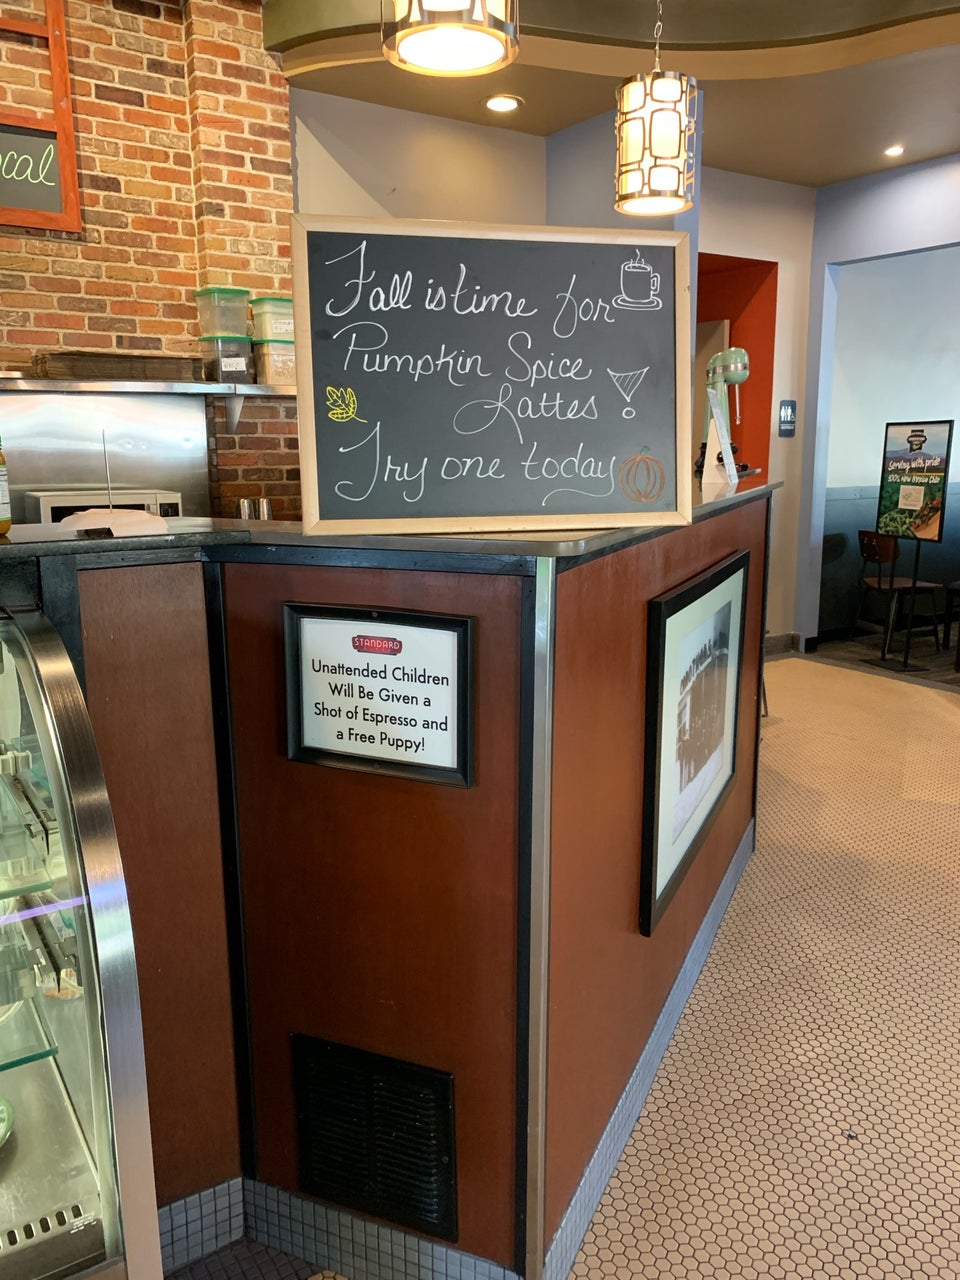 ocal
Fall is time for
Pumpkin Spice
Lattes
Try one today
STANDARD
Unattended Children
Will Be Given a
Shot of Espresso and
a Free Puppy!
Serving with pride